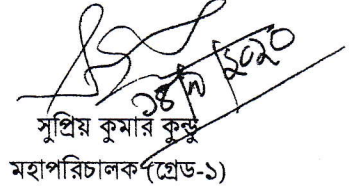 ১৪/৭/২০২০
সুপ্রিয় কুমার কুন্ডু
মহাপরিচালক (গ্রেড-১)